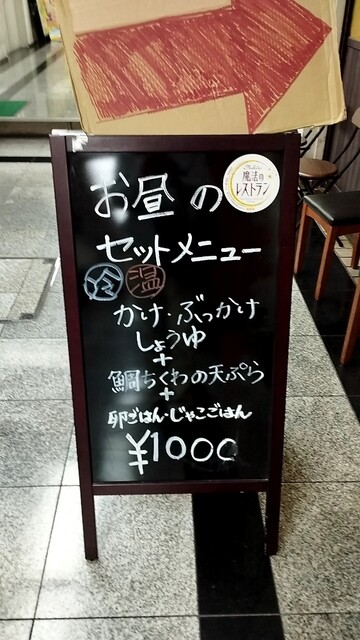 お昼の
魔法の
レストラン
セットメニュー
冷 温
かけ・ぶっかけ
しょうゆ
+
鯛ちくわの天ぷら
+
卵ごはん・じゃこごはん
¥1000